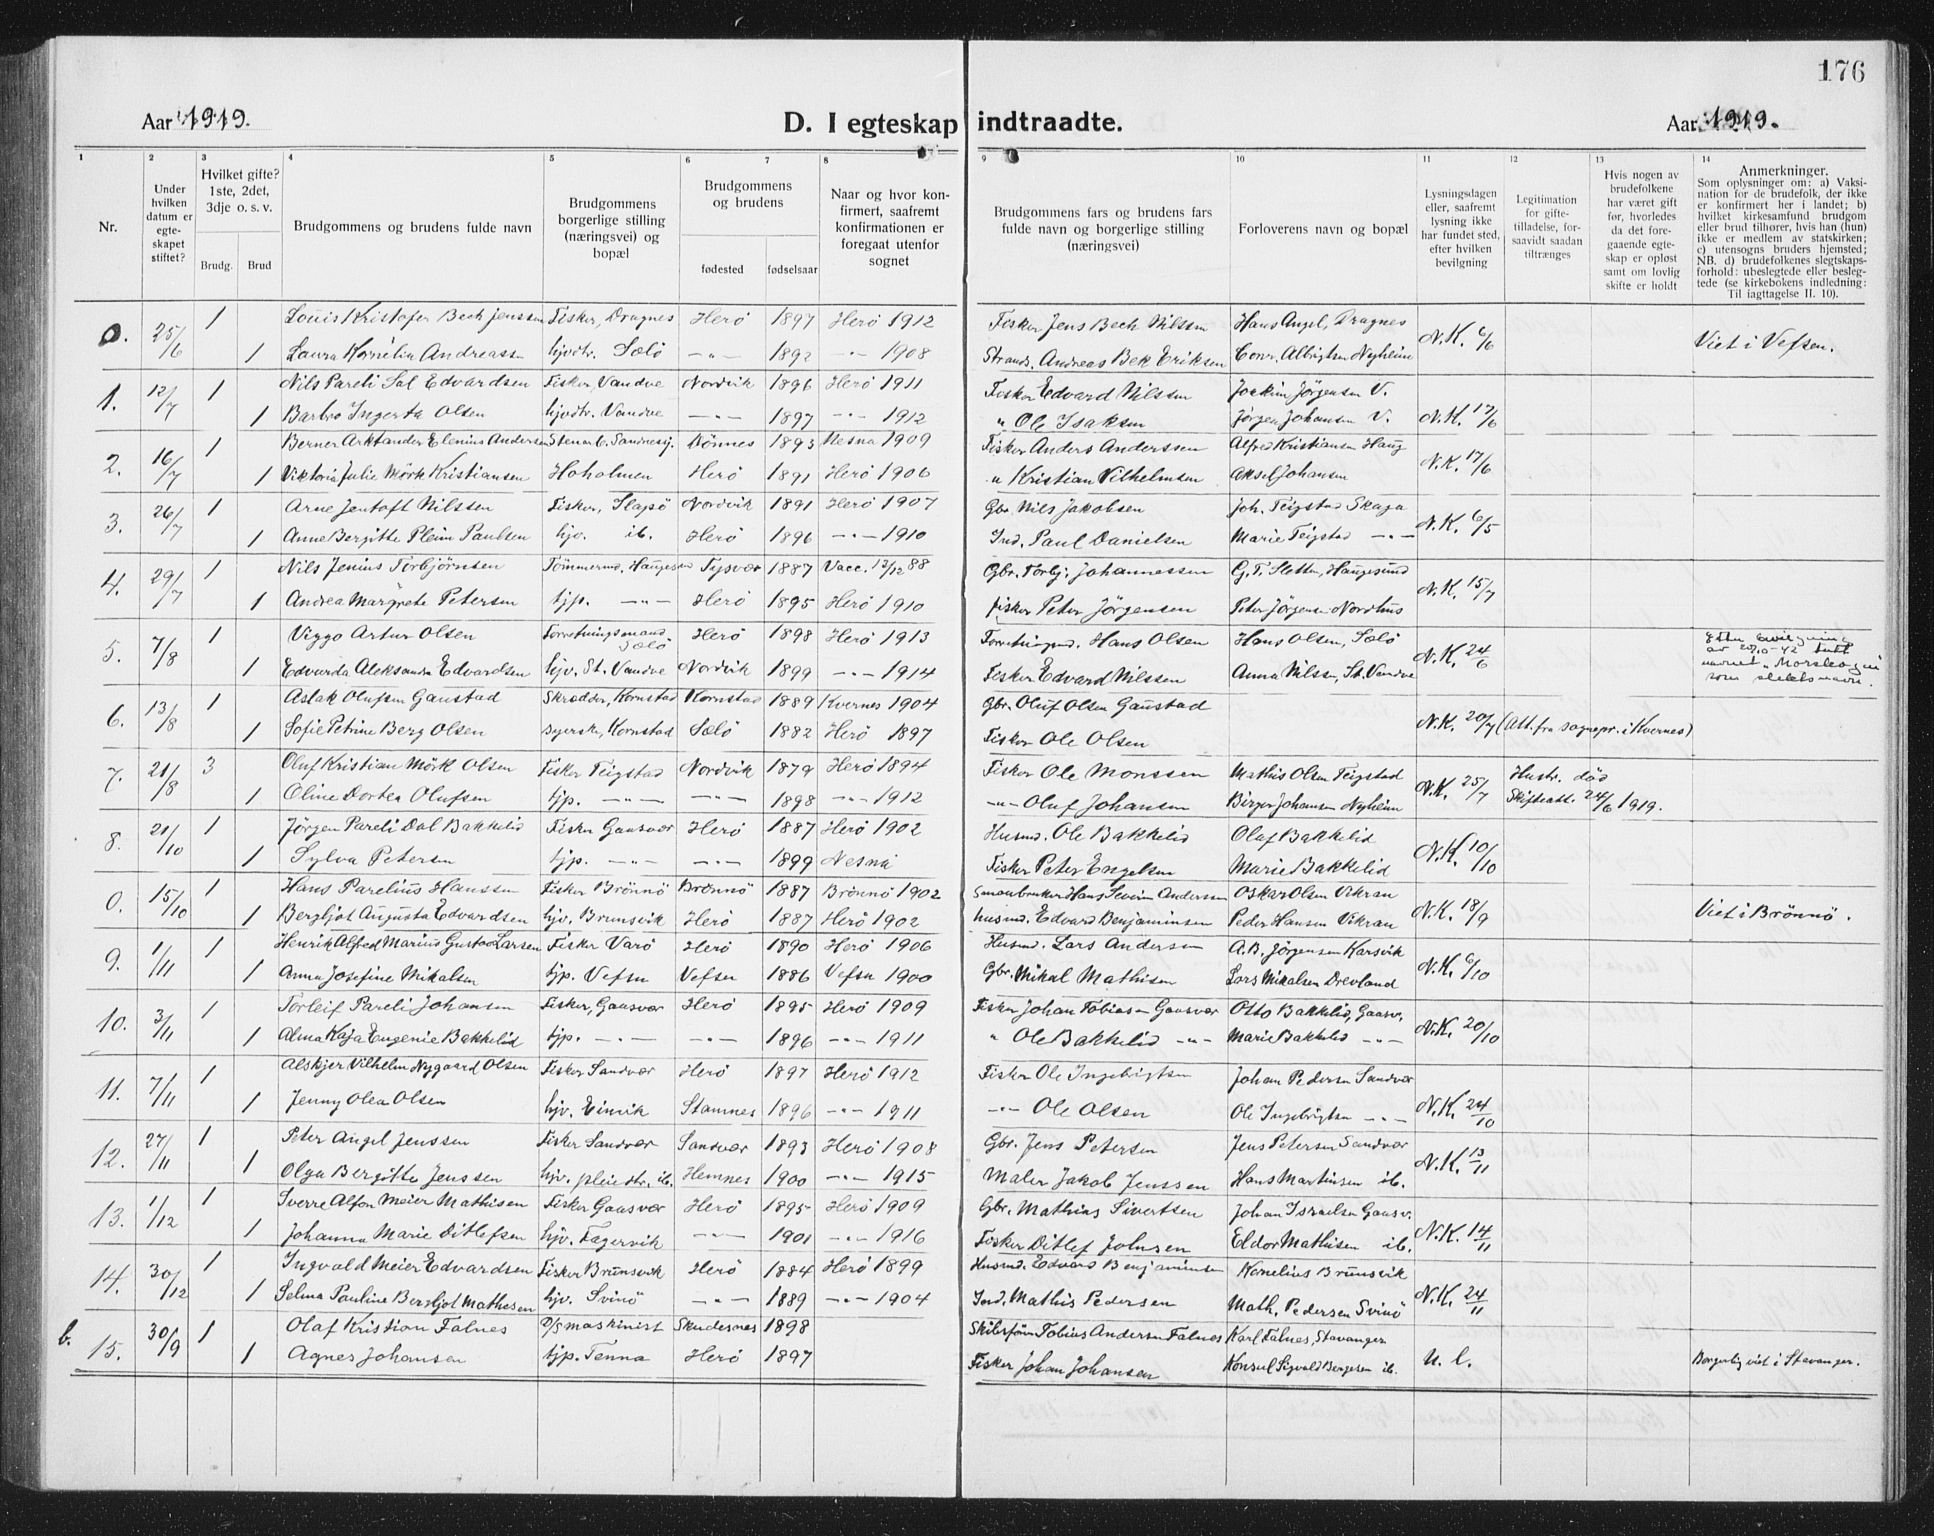 176
Aar 1919.
D. I egteskap indtraadte.
Aar 1919.
1 2 3 4 5 6 7 8 9 10 11 12 13 14
Nr.
Under hvilken datum er egte-skapet stiftet?
Hvilket gifte? 1ste, 2det, 3dje o. s. v.
Brudg. Brud
Brudgommens og brudens fulde navn
Brudgommens borgerlige stilling (næringsvei) og bopæl
Brudgommens og brudens
fødested fødselsaar
Naar og hvor kon-firmert, saafremt konfirmationen er foregaat utenfor sognet
Brudgommens fars og brudens fars fulde navn og borgerlige stilling (næringsvei)
Forloverens navn og bopæl
Lysningsdagen eller, saafremt lysning ikke har fundet sted, efter hvilken bevilgning
Legitimation for gifte-tilladelse, for-saavidt saadan tiltrænges
Hvis nogen av brudefolkene har været gift før, hvorledes da det fore-gaaende egte-skap er opløst samt om lovlig skifte er holdt
Anmerkninger.
Som oplysninger om: a) Vaksi-nation for de brudefolk, der ikke er konfirmert her i landet; b) hvilket kirkesamfund brudgom eller brud tilhører, hvis han (hun) ikke er medlem av statskirken; c) utensogns bruders hjemsted; NB. d) brudefolkenes slegtskaps-forhold: ubeslegtede eller besleg-tede (se kirkebokens indledning: Til iagttagelse II. 10).
0. 25/6 1 Louis Kristofer Bech Jenssen Fisker, Dragnes Herö 1897 Herö 1912 Fisker Jens Bech Nilssen Hans Angel, Dragnes N.K. 6/6 Viet i Vefsen.
1 Laura Kornelia Andreassen hjvdtr. Salö -"- 1892 -"- 1908 Strands. Andreas Bek Eriksen Conr. Albrigtsen Nyheim
1. 12/7 1 Nils Pareli Sal Edvardsen Fisker Vandve Nordvik 1896 Herö 1911 Fisker Edvard Nilssen Joakim Jörgensen V. N.K. 17/6
1 Barbro Ingerta Olsen hjvdtr. Vandve -"- 1897 -"- 1912 " Ole Isaksen Jörgen Johansen V.
2. 16/7 1 Berner Arktander Elenius Andersen Sandnessj. Dönnes 1893 Nesna 1909 Fisker Anders Anderssen Alfred Kristiansen Haug N.K. 17/6
1 Viktoria Julie Mörk Kristiansen Hoholmen Herö 1891 Herö 1906 " Kristian Vilhelmsen Aksel Johansen
3. 26/7 1 Arne Jentoft Nilssen Fisker, Slapö Nordvik 1891 Herö 1907 Gbr. Nils Jakobsen Joh. Teigstad Skaga N.K. 6/5
1 Anne Bergitte Pleim Paulsen hjv. ib. Herö 1896 -"- 1910 Ind. Paul Danielsen Marie Teigstad -"-
4. 29/7 1 Nils Jenius Torbjörnsen Tömmermd. Haugesund Tysvær 1887 Vacc. 12/12 88 Gbr. Torbj. Johannessen G. T. Sletten, Haugesund N.K. 15/7
1 Andrea Margrete Petersen tjp. -"- Herö 1895 Herö 1910 Fisker Peter Jörgensen Peter Jörgensen Nordhus
5. 7/8 1 Viggo Artur Olsen Forretningsmand Salö Herö 1898 Herö 1913 Forretningsmd. Hans Olsen Hans Olsen, Salö N.K. 24/6 Etter bevilgning av 20/10-42 tatt navnet som slektsnavn.
1 Edvarda Aleksandra Edvardsen hjv. St. Vandve Nordvik 1899 -"- 1914 Fisker Edvard Nilssen Anna Nilssen, St. Vandve
6. 13/8 1 Aslak Olufsen Gaustad Skrædder, Kornstad Kornstad 1889 Kvernes 1904 Gbr. Oluf Olsen Gaustad N.K. 20/7 (Att. fra sognepr. i Kvernes)
1 Sofie Petrine Berg Olsen syerske, Kornstad Salö 1882 Herö 1897 Fisker Ole Olsen
7. 21/8 3 Oluf Kristian Mörk Olsen Fisker Teigstad Nordvik 1879 Herö 1894 Fisker Ole Monssen Mathis Olsen Teigstad N.K. 25/7 Hustr. död
1 Oline Dortea Olufsen tjp. -"- -"- 1898 -"- 1912 -"- Oluf Johansen Birger Johansen Nyheim Skifteatt. 24/6 1919.
8. 21/10 1 Jörgen Pareli Dal Bakkelid Fisker Gaasvær Herö 1887 Herö 1902 Husmd. Ole Bakkelid Olaf Bakkelid N.K. 10/10
1 Sylva Petersen tjp. -"- -"- 1899 Nesna Fisker Peter Engelsen Marie Bakkelid
0. 15/10 1 Hans Parelius Hanssen Fisker Brönnö Brönnö 1887 Brönnö 1902 Smaabruker Hans Severin Anderssen Oskar Olsen Vikran N.K. 18/9 Viet i Brönnö.
1 Bergljot Augusta Edvardsen hjv. Brunsvik Herö 1887 Herö 1902 husmd. Edvard Benjaminsen Peder Hansen Vikran
9. 1/11 1 Henrik Alfred Marius Gustav Larsen Fisker Varö Herö 1890 Herö 1906 Husmd. Lars Andersen A.B. Jörgensen Karsvik N.K. 6/10
1 Anna Josefine Mikalsen tjp. Vefsn Vefsn 1886 Vefsn 1900 Gbr. Mikal Mathisen Lars Mikalsen Drevland
10. 3/11 1 Torleif Pareli Johansen Fisker, Gaasvær Herö 1895 Herö 1909 Fisker Johan Tobias-n Gaasvær Otto Bakkelid, Gaasv. N.K. 20/10
1 Alma Kaja Eugenie Bakkelid tjp. -"- -"- 1896 -"- 1911 " Ole Bakkelid -"- Marie Bakkelid -"-
11. 7/11 1 Alskjer Vilhelm Nygaard Olsen Fisker Sandvær Herö 1897 Herö 1912 Fisker Ole Ingebrigtsen Johan Pedersen Sandvær N.K. 24/10
1 Jenny Olea Olsen hjv. Einvik Stamnes 1896 -"- 1911 -"- Ole Olsen Ole Ingebrigtsen -"-
12. 27/11 1 Peter Angel Jenssen Fisker Sandvær Sandvær 1893 Herö 1908 Gbr. Jens Petersen Jens Petersen Sandvær N.K. 13/11
1 Olga Bergitte Jenssen hjv. pleiedtr. ib. Hemnes 1900 -"- 1915 Maler Jakob Jenssen Hans Martinsen ib.
13. 1/12 1 Sverre Alfon Meier Mathisen Fisker Gaasvær Herö 1895 Herö 1909 Gbr. Mathias Sivertsen Johan Israelsen Gaasv. N.K. 14/11
1 Johanna Marie Ditlefsen hjv. Fagervik -"- 1901 -"- 1916 Fisker Ditlef Johnsen Eldor Mathisen ib.
14. 30/12 1 Ingvald Meier Edvardsen Fisker Brunsvik Herö 1884 Herö 1899 Husmd. Edvard Benjaminsen Kornelius Brunsvik N.K. 24/11
1 Selma Pauline Bergljot Mathesen hjv. Svinö -"- 1889 -"- 1904 Ind. Mathis Pedersen Math. Pedersen Svinö
b. 15. 30/9 1 Olaf Kristian Falnes D/S maskinist Skudesnes 1898 Skibsförer Tobias Andersen Falnes Karl Falnes, Stavanger U. l. Borgerlig viet i Stavanger.
1 Agnes Johansen tjp. Tenna Herö 1897 Fisker Johan Johansen Konsul Sigvald Bergesen ib.